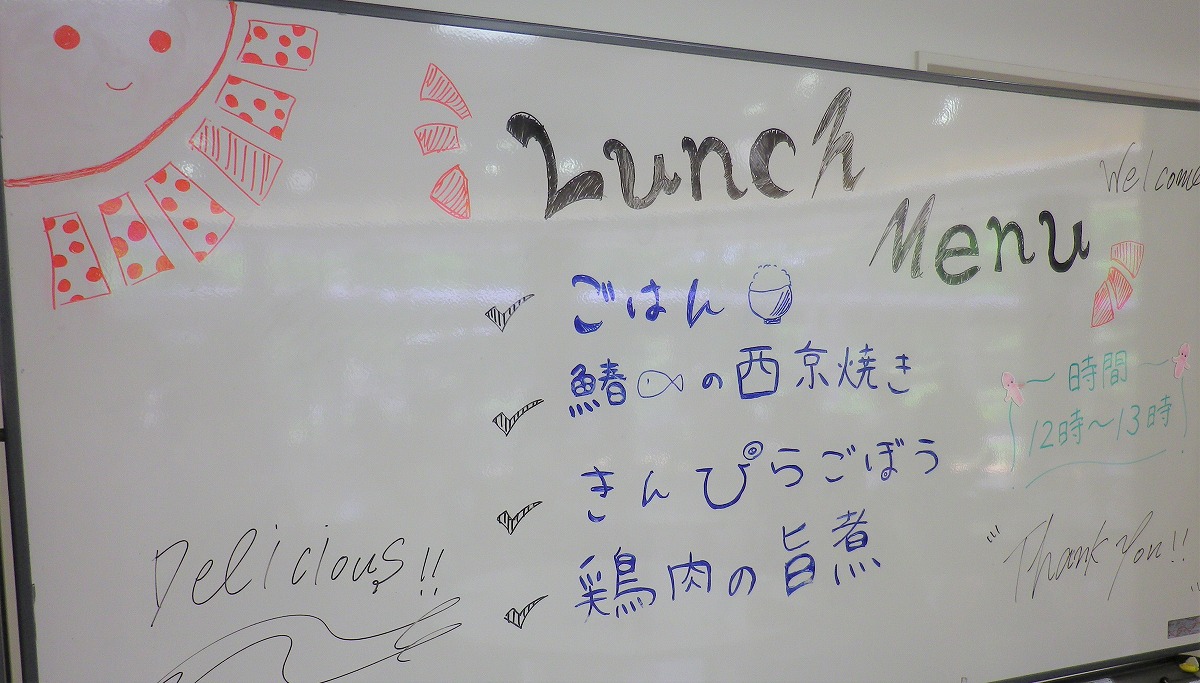 Lunch
Menu
Welcome
ごはん
鰆の西京焼き
きんぴらごぼう
鶏肉の旨煮
～時間～
12時～13時
Delicious!!
Thank You!!